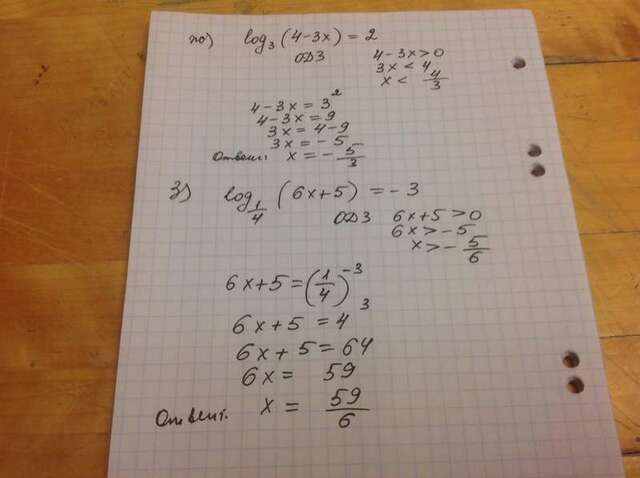 ж) log₃(4-3x) = 2
ОДЗ 4-3x>0
3x < 4
x < 4/3
4-3x = 3²
4-3x = 9
3x = 4-9
3x = -5
Ответ: x = -5/3
з) log_{1/4}(6x+5) = -3
ОДЗ 6x+5>0
6x>-5
x>-5/6
6x+5 = (1/4)⁻³
6x+5 = 4³
6x+5 = 64
6x = 59
Ответ. x = 59/6